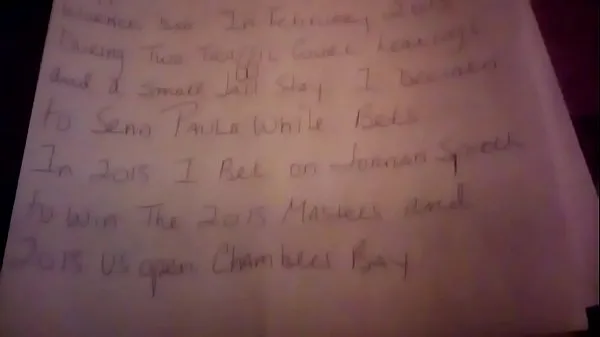 In February 2015
During Two Traffic Court Hearings
and a small Jail Stay I
to Send Paula White Bets
In 2015 I Bet on Jordan Speith
to win The 2015 Masters and
2015 US open Chambers Bay